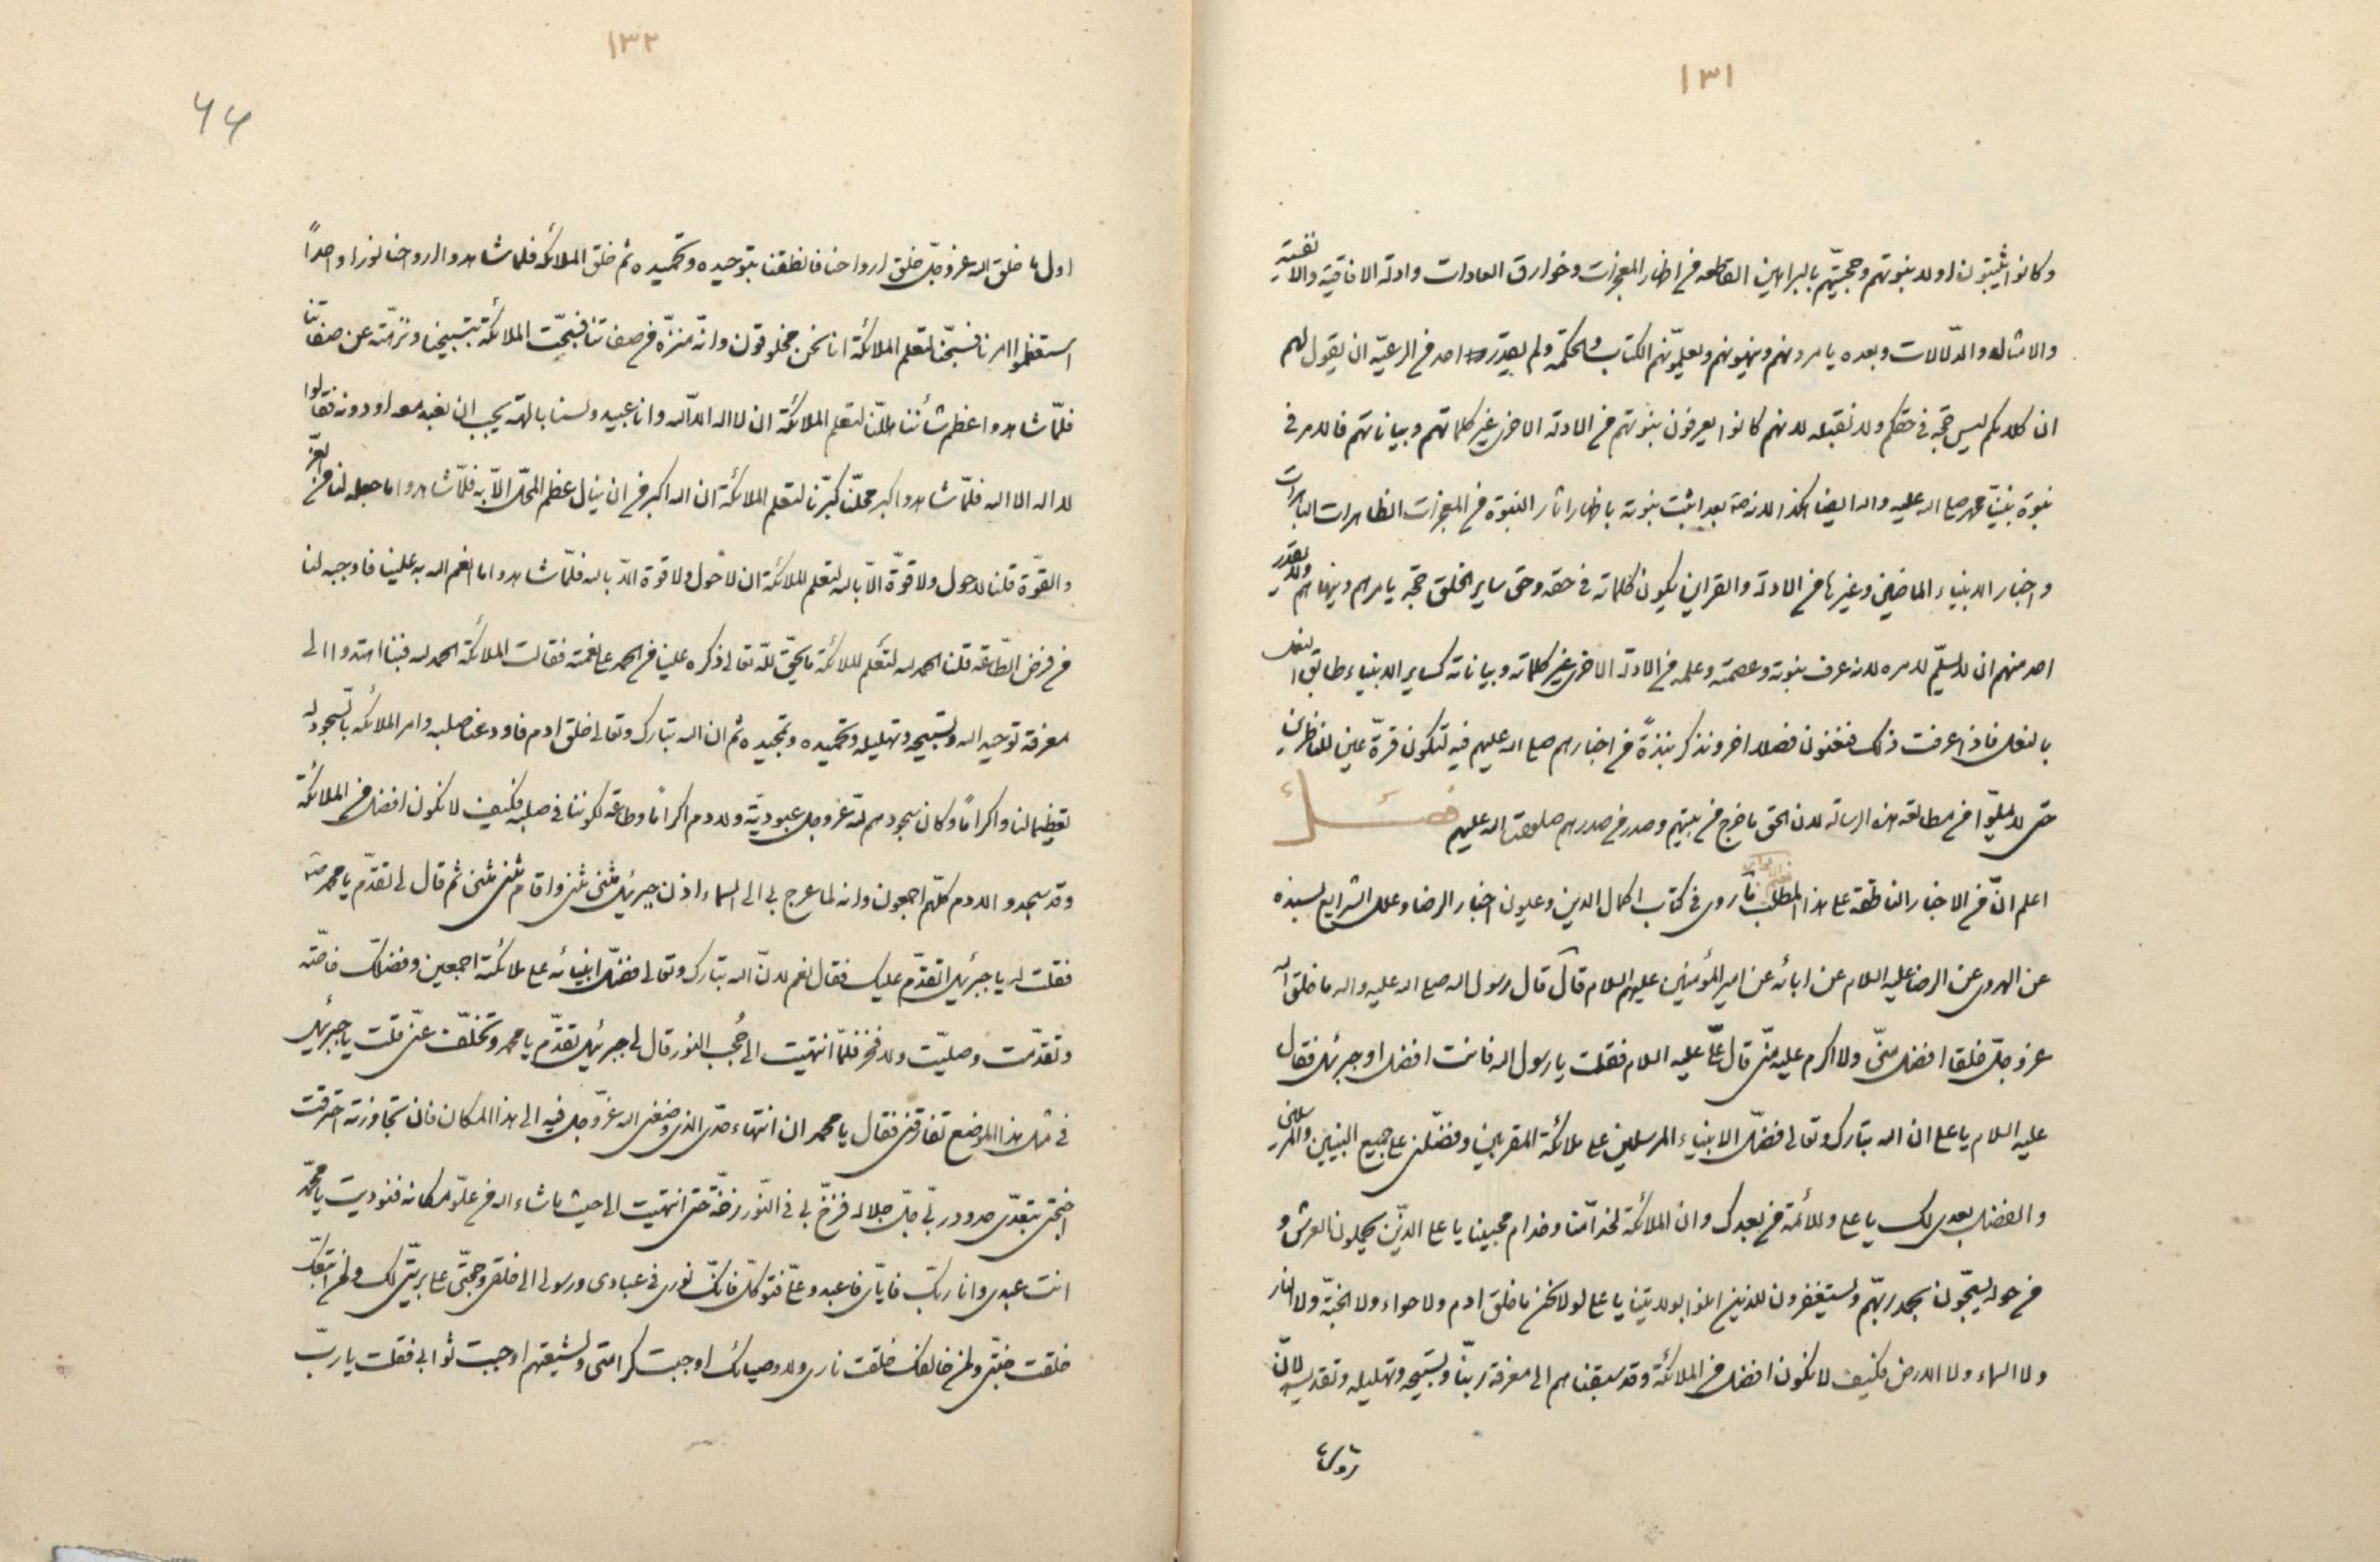 ١٣١
وكانوا يثبتون اولا بنبوتهم وحجيتهم بالبراهين القاطعه من اظهار المعجزات وخوارق العادات وادلة الافاقية والانفسية
والامثاله والدلالات وبعده يامرونهم وينهونهم ويعلمونهم الكتاب والحكمة ولم يقدر احد من الرعية ان يقول لهم
ان كلامكم ليس حجة في حقكم ولا نقبله لانهم كانوا يعرفون نبوتهم من الادلة الاخرى غير كلماتهم وبياناتهم فالامر في
نبوة نبينا محمد صلى الله عليه واله ايضا هكذا لانه بعد اثبت نبوته باظهار اثار النبوة من المعجزات الظاهرات الباهرات
واخبار الانبياء الماضين وغيرها من الادلة والقراين يكون كلماته في حقه وحق ساير الخلق حجة يامرهم وينهاهم ولا يقدر
احد منهم ان لا يسلم لامره لانه عرف نبوته وعصمته وعلمه من الادلة الاخرى غير كلماته وبياناته كساير الانبياء طابق النعل
بالنعل فاذا عرفت ذلك فنعنون فصلا اخر ونذكر نبذة من اخبارهم صلى الله عليهم فيه لتكون قرة عين للناظرين
حتى لا يملوا من مطالعة هذه الرسالة لان الحق ما خرج من بيتهم وصدر من صدرهم صلوات الله عليهم فصل
اعلم ان من الاخبار الناطقة على هذا المطلب ما روى في كتاب اكمال الدين وعيون اخبار الرضا وعلل الشرايع بسنده
عن الهروى عن الرضا عليه السلام عن ابائه عن امير المؤمنين عليهم السلام قال قال رسول الله صلى الله عليه واله ما خلق الله
عز وجل خلقا افضل منى ولا اكرم عليه منى قال على عليه السلام فقلت يا رسول الله فانت افضل او جبرئيل فقال
عليه السلام يا على ان الله تبارك وتعالى فضل الانبياء المرسلين على ملائكة المقربين وفضلنى على جميع النبيين والمرسلين
والفضل بعدى لك يا على وللائمة من بعدك وان الملائكة لخدامنا وخدام محبينا يا على الذين يحملون العرش و
من حوله يسبحون بحمد ربهم ويستغفرون للذين امنوا بولايتنا يا على لولا نحن ما خلق ادم ولا حواء ولا الجنة ولا النار
ولا السماء ولا الارض فكيف لا نكون افضل من الملائكة وقد سبقناهم الى معرفة ربنا وتسبيحه وتهليله وتقديسه لان
١٣٢
اول ما خلق الله عز وجل خلق ارواحنا فانطقنا بتوحيده وتحميده ثم خلق الملائكة فلما شاهدوا ارواحنا نورا واحداً
استعظموا امرنا فسبحنا لتعلم الملائكة انا نحن مخلوقون وانه منزه من صفاتنا فسبحت الملائكة بتسبيحنا ونزهته عن صفاتنا
فلما شاهدوا عظم شأننا هللنا لتعلم الملائكة ان لا اله الا الله وانا عبيد ولسنا بالهة يجب ان نعبد معه او دونه فقالوا
لا اله الا الله فلما شاهدوا كبر محلنا كبرنا لتعلم الملائكة ان الله اكبر من ان ينال عظم المحل الا به فلما شاهدوا ما جعله لنا من العز
والقوة قلنا لا حول ولا قوة الا بالله لتعلم الملائكة ان لا حول ولا قوة الا بالله فلما شاهدوا ما انعم الله به علينا فاوجبه لنا
من فرض الطاعة قلنا الحمد لله لتعلم الملائكة ما يحق لله تعالى ذكره علينا من الحمد على نعمته فقالت الملائكة الحمد لله فبنا اهتدوا الى
معرفة توحيد الله وتسبيحه وتهليله وتحميده وتمجيده ثم ان الله تبارك وتعالى خلق ادم فاودعنا صلبه وامر الملائكة بالسجود له
تعظيما لنا واكراماً وكان سجودهم لله عز وجل عبودية ولادم اكراماً وطاعة لكوننا في صلبه فكيف لا نكون افضل من الملائكة
وقد سجدوا لادم كلهم اجمعون وانه لما عرج بى الى السماء اذن جبرئيل مثنى مثنى واقام مثنى مثنى ثم قال لى تقدم يا محمد
فقلت له يا جبرئيل اتقدم عليك فقال نعم لان الله تبارك وتعالى فضل انبيائه على ملائكته اجمعين وفضلك خاصة
وتقدمت وصليت ولا فخر فلما انتهيت الى حُجب النور قال لى جبرئيل تقدم يا محمد وتخلف عنى قلت يا جبرئيل
في مثل هذا الموضع تفارقنى فقال يا محمد ان انتهاء حدى الذى وضعنى الله عز وجل فيه الى هذا المكان فان تجاوزته احترقت
اجنحتى بتعدى حدود ربى جل جلاله فزخ بى في النور زخة حتى انتهيت الى حيث ما شاء الله من علو مكانه فنوديت يا محمد
انت عبدى وانا ربك فاياى فاعبد وعلى فتوكل فانك نورى في عبادى ورسولى الى خلقى وحجتى على بريتى لك ولمن اتبعك
خلقت جنتى ولمن خالفك خلقت نارى ولاوصيائك اوجبت كرامتى ولشيعتهم اوجبت ثوابى فقلت يا رب